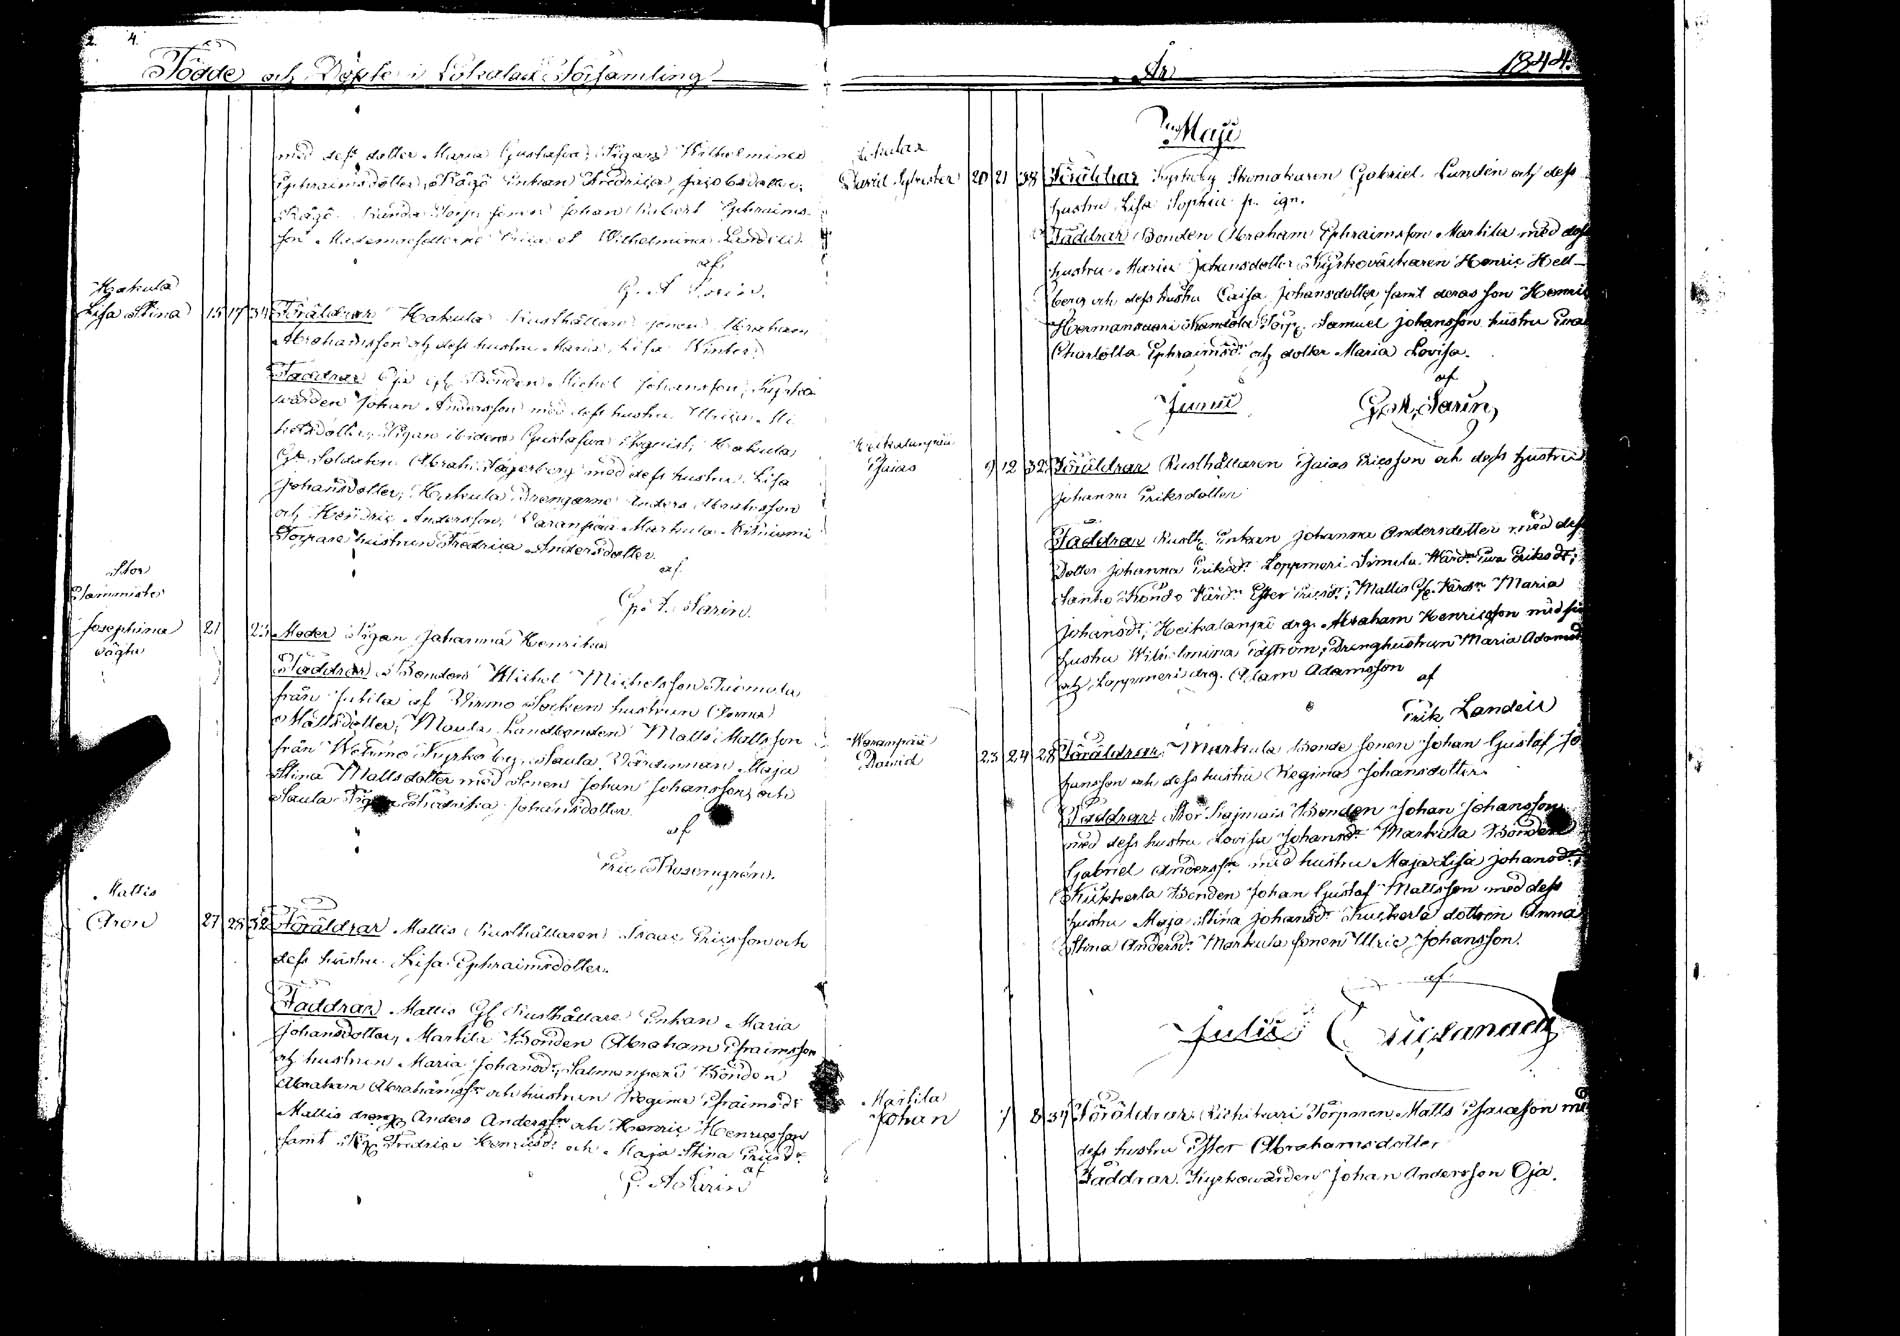 2. 4.
Födde och Döpte i Lokalax Församling
med dess dotter Maria Gustafva, Pigan Wilhelmina
Ephraimsdotter, Enkan Fredrica Jacobsdotter,
Johan Robert Ephraims-
son Mademoisellerne Erica et Wilhelmina Landell.
af
G. A. Sarin.
Hakula
Lisa Stina 15 17 34 Föräldrar Hakula Rusthållare sonen Abraham
Abrahamsson och dess hustru Maria Lisa Winter.
Faddrar Oja Bonden Michel Johansson, Kyrko
wärden Johan Andersson med dess hustru Ulrica Mi
helsdotter, Pigan ibidem Gustafva Hakula
Gl. Soldaten Abrah. Sagerberg med dess hustru Lisa
Johansdotter, Hakula Drengarne Anders Abrahamsson
och Hendric Andersson, Waranpää Markula
Torpare hustrun Fredrica Andersdotter.
af
G. A. Sarin.
Stor
Josephina 21 23 Moder Pigan Johanna Henrika
oägta
Faddrar Bonden Michel Michelsson Tuomola
från af Virmo Socken hustrun Anna
Mattsdotter, Landbonden Matts Mattsson
från Wehmo Kyrkoby, Saula Värdinnan Maja
Stina Mattsdotter med Sonen Johan Johansson, och
Saula Pigan Fredrika Johansdotter.
af
Eric Rosengrén.
Mattis
Aron 27 28 32 Föräldrar Mattis Rusthållaren Isaac Ericsson och
dess hustru Lisa Ephraimsdotter.
Faddrar Mattis Gl. Rusthållare Enkan Maria
Johansdotter, Martila Bonden Abraham Efraimsson
och hustrun Maria Johansdr, Salmenperä Bonden
Abraham Abrahamssn och hustrun Regina Efraimsdr
Mattis dreng Anders Anderssn och Henric Henricsson
samt Fredrica Henricsdr och Maja Stina Ericsdr
af
G. A. Sarin
År 1844.
Maji
Lokalax
David Sylvester 20 21 38 Föräldrar Kyrkoby Skomakaren Gabriel Lundén och dess
hustru Lisa Sophia p. ign.
Faddrar Bonden Abraham Ephraimsson Martila med dess
hustru Maria Johansdotter, Kyrkoväktaren Henric Hell-
berg och dess hustru Caisa Johansdotter samt deras son Henric
Hermansaari Torp. Samuel Johansson hustru Eva
Charlotta Ephraimsdr och dotter Maria Lovisa.
af
G. A. Sarin,
Junii
Heikolanpää
Esaias 9 12 32 Föräldrar Rusthållaren Esaias Ericsson och dess hustru
Johanna Eriksdotter
Faddrar Rusth. Enkan Johanna Andersdotter med dess
Dotter Johanna Eriksdr Loppmeri Simula Wärdn Eva Eriksdr;
Wärdn Ester Ericsdr; Mattis Gl. Wärdn Maria
Johansdr; Heikolanpää drg. Abraham Henricsson med sin
hustru Wilhelmina Edström, Drenghustrun Maria Adamsdr
och Loppmeri drg. Adam Adamsson
af
Erik Landell
Waranpää
Dawid 23 24 28 Föräldrar, Markula Bonde sonen Johan Gustaf Jo
hansson och dess hustru Regina Johansdotter.
Faddrar: Stor Bonden Johan Johansson
med dess hustru Lovisa Johansdr Markula Bonden
Gabriel Anderssn med hustru Maja Lisa Johansdr;
Kukkerla Bonden Johan Gustaf Mattsson med dess
hustru Maja Stina Johansdr Kukkerla dottren Anna
Stina Andersdr Markula sonen Ulric Johansson.
af
Julii
Martila
Johan 7 8 37 Föräldrar. Torpmen Matts Esaiasson med
dess hustru Ester Abrahamsdotter
Faddrar. Kyrkowärden Johan Andersson Oja.